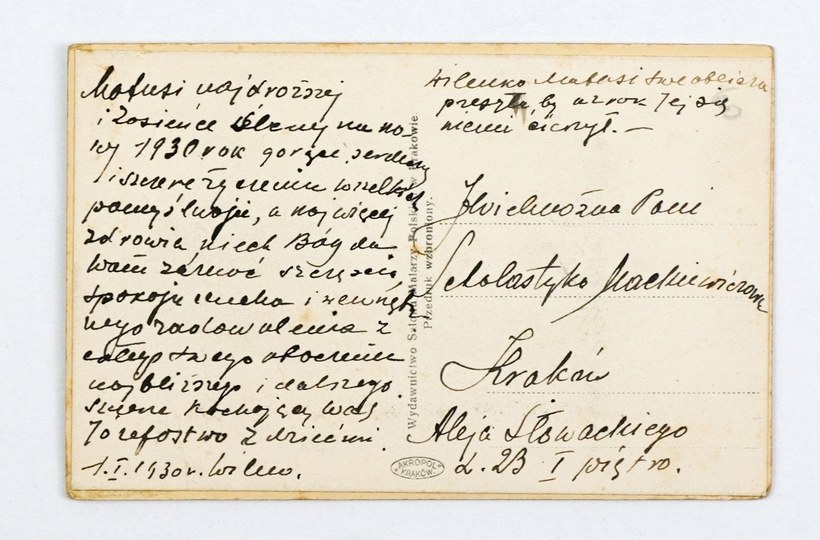 Matusi najdroższej
i Zosieńce ślemy na no-
wy 1930 rok gorące, serdeczne
i szczere życzenia wszelkiej
pomyślności, a najwięcej
zdrowia niech Bóg da
Wam zaznać szczęścia,
spokoju ducha i zewnętrz
nego zadowolenia z
całego swego otoczenia
najbliższego i dalszego.
Szczerze kochający Was
Józefostwo z dziećmi.
1.I.1930 r. Wilno.
Wydawnictwo Salonu Malarzy Polskich w Krakowie.
Przedruk wzbroniony.
AKROPOL
KRAKÓW
Matusi swe oblicza
by wzrok Jej się
niemi cieszył. —
JWielmożna Pani
Scholastyka Mackiewiczowa
Kraków
Aleja Słowackiego
L. 23 I piętro.